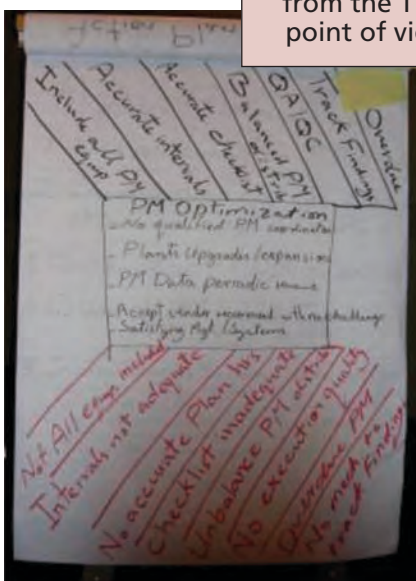 from the T
point of vie
Include all PM
equip
Accurate intervals
Accurate checklist
Balanced PM
distrib
QA/QC
Track Findings
Overdue
PM Optimization
- No qualified PM coordinator
- Plants Upgrades/expansion
- PM Data periodic
- Accept vendor recommend with no challenge
- Satisfying Mgt Systems
Not All equip included
Intervals not adequate
No accurate Plan hrs
Checklist inadequate
Unbalance PM distrib
No execution quality
Overdue PM
No mech to
track Findings